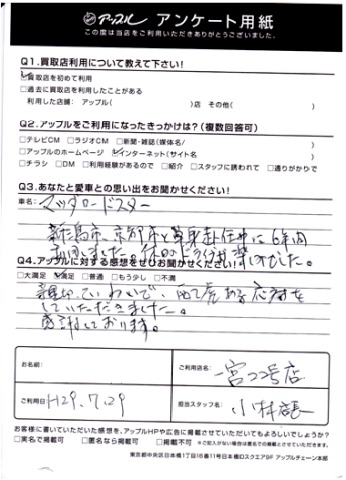 アップル アンケート用紙
この度は当店をご利用いただきありがとうございました。
Q1.買取店利用について教えて下さい!
☑買取店を初めて利用
□過去に買取店を利用したことがある
利用した店舗: アップル( )店 その他( )
Q2.アップルをご利用になったきっかけは?(複数回答可)
□テレビCM □ラジオCM □新聞・雑誌(媒体名/ )
□アップルのホームページ ☑インターネット(サイト名 )
□チラシ □DM □利用経験があるので □紹介 □スタッフに誘われて □通りがかりで
Q3.あなたと愛車との思い出をお聞かせください!
車名: マツダロードスター
新潟市、京都市と単身赴任中は6年間
Q4.アップルに対する感想をぜひお聞かせください!
□大満足 ☑満足 □普通 □もう少し □不満
親切、ていねいで、ある応対を
していただきました。
感謝しております。
お名前:
ご利用店名: 一宮22号店
ご利用日 H29.7.29
担当スタッフ名: 小林店長
お客様に書いていただいた感想を、アップルHPや広告に掲載させていただいてもよろしいでしょうか?
□実名で掲載可 □匿名なら掲載可 □掲載不可 ※ご記入がない場合は匿名での掲載とさせていただきます。
東京都中央区日本橋1丁目16番11号日本橋Dスクエア9F アップルチェーン本部